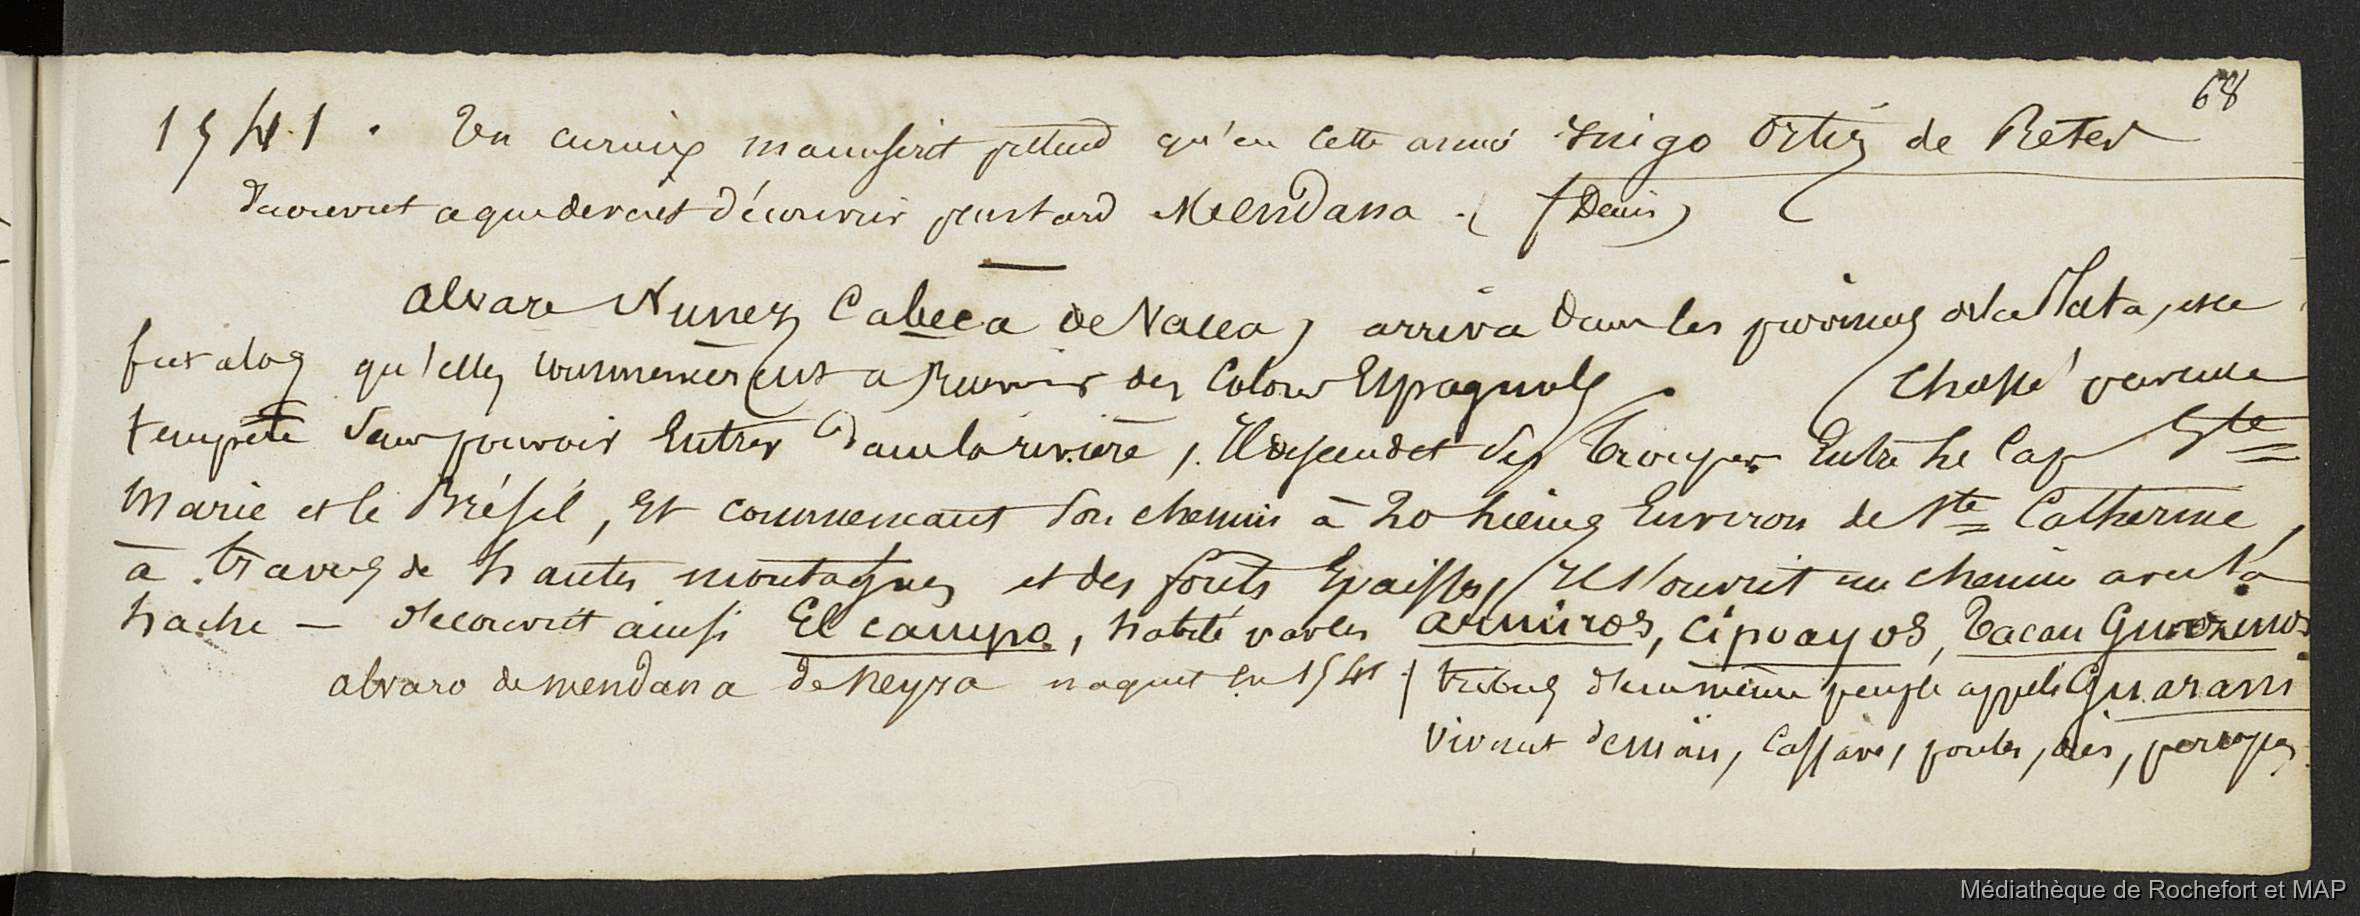 68
1541. Un curieux manuscrit prétend qu'en cette année Inigo Ortiz de Retes
découvrit ce que devait découvrir plus tard Mendana. (f Denis)
Alvare Nunez Cabeca de Vacca, arriva dans les provinces de la Plata, et ce
fut alors qu'elles commencèrent à recevoir des Colons Espagnols. Chassé par une
tempête sans pouvoir entrer dans la rivière, il descendit ses troupes entre le Cap Ste
Marie et le Brésil, et commencant son chemin à 20 lieues environ de Ste Catherine,
à travers de hautes montagnes et des forêts epaisses, il s'ouvrit un chemin avec la
hache — découvrit ainsi El campo, habité par les armiros, cipoayos, Tacau
alvaro de mendana de neyra naquit en 1541 / tribus d'un même peuple appelé Guarani
vivant de maïs, cassave, poules, oies, perroquets
Médiathèque de Rochefort et MAP